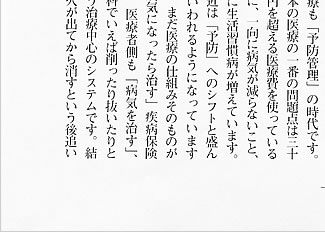 療も「予防管理」の時代です。
本の医療の一番の問題点は三十
円を超える医療費を使っている
に、一向に病気が減らないこと、
に生活習慣病が増えています。
近は「予防」へのシフトと盛ん
いわれるようになっています
まだ医療の仕組みそのものが
気になったら治す」疾病保険
医療者側も「病気を治す」、
科でいえば削ったり抜いたりと
う治療中心のシステムです。結
火が出てから消すという後追い